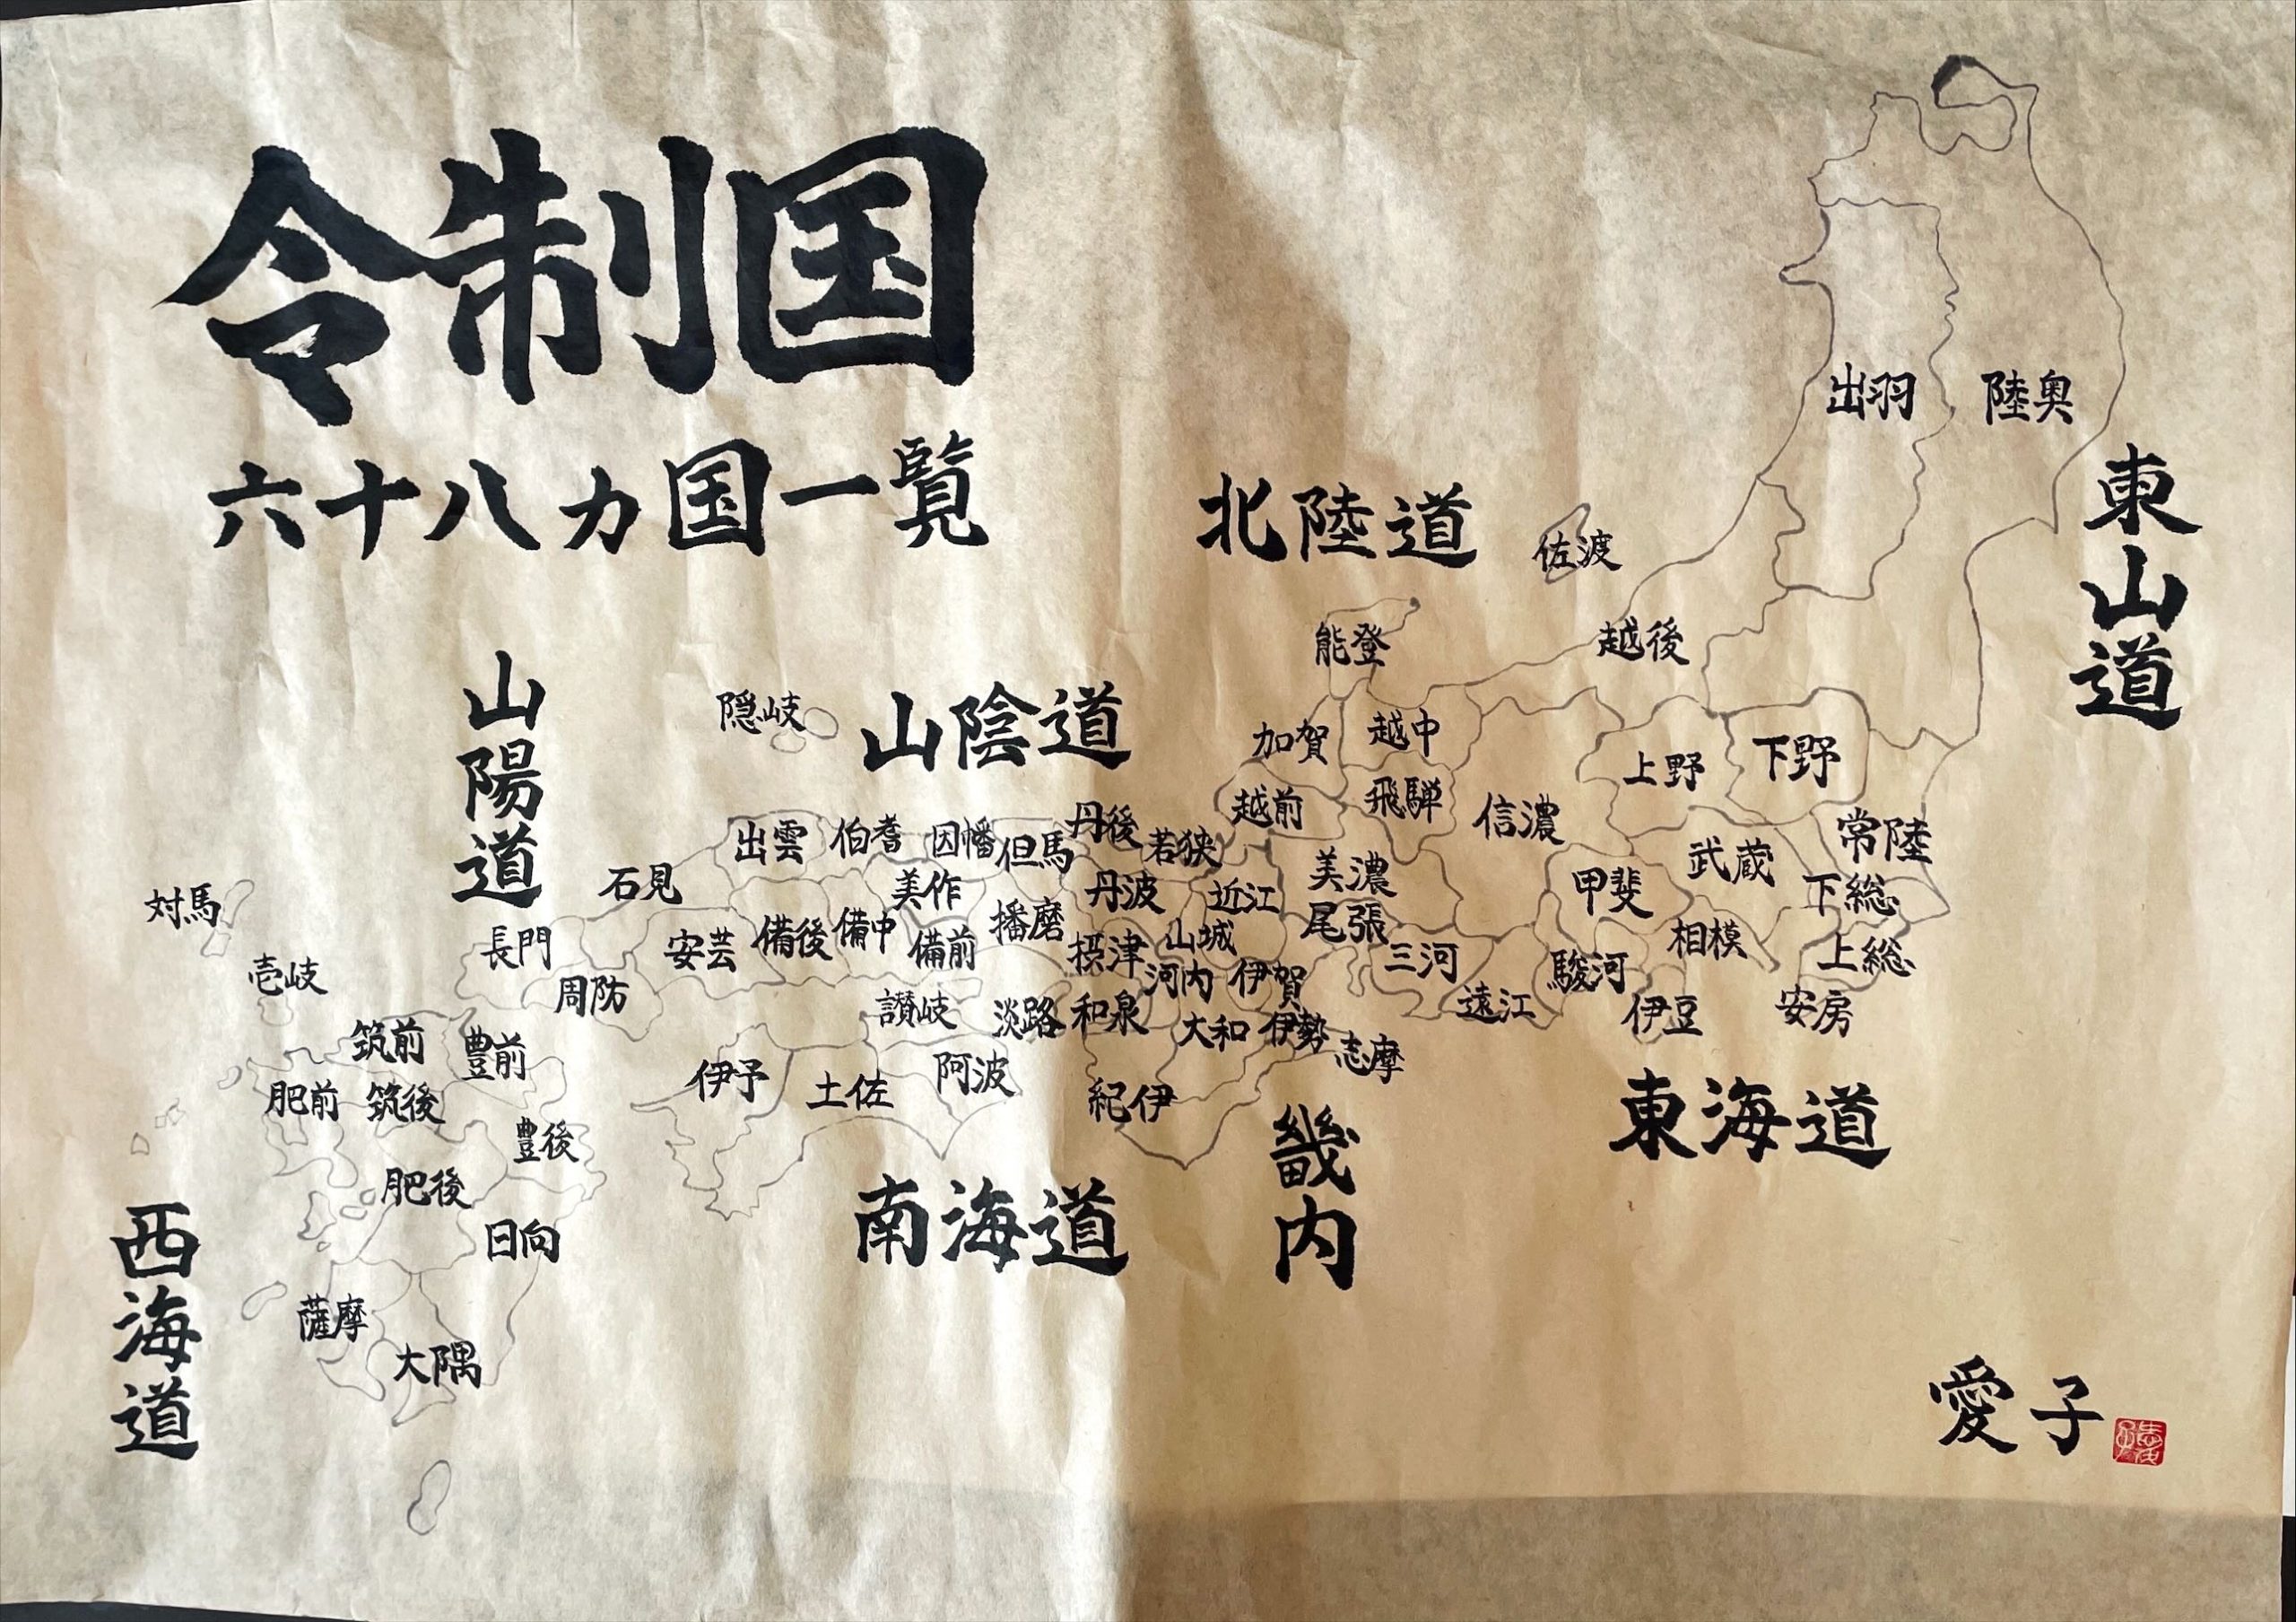 令制国
六十八カ国一覧
北陸道
東山道
山陽道
山陰道
東海道
南海道
畿内
西海道
出羽
陸奥
佐渡
越後
能登
加賀
越中
越前
飛騨
信濃
上野
下野
常陸
武蔵
下総
上総
安房
甲斐
相模
駿河
伊豆
美濃
尾張
三河
遠江
隠岐
出雲
伯耆
因幡
但馬
丹後
若狭
石見
美作
丹波
近江
安芸
備後
備中
備前
播磨
摂津
山城
河内
伊賀
長門
周防
讃岐
淡路
和泉
大和
伊勢
志摩
伊予
土佐
阿波
紀伊
対馬
壱岐
筑前
豊前
肥前
筑後
豊後
肥後
日向
薩摩
大隅
愛子